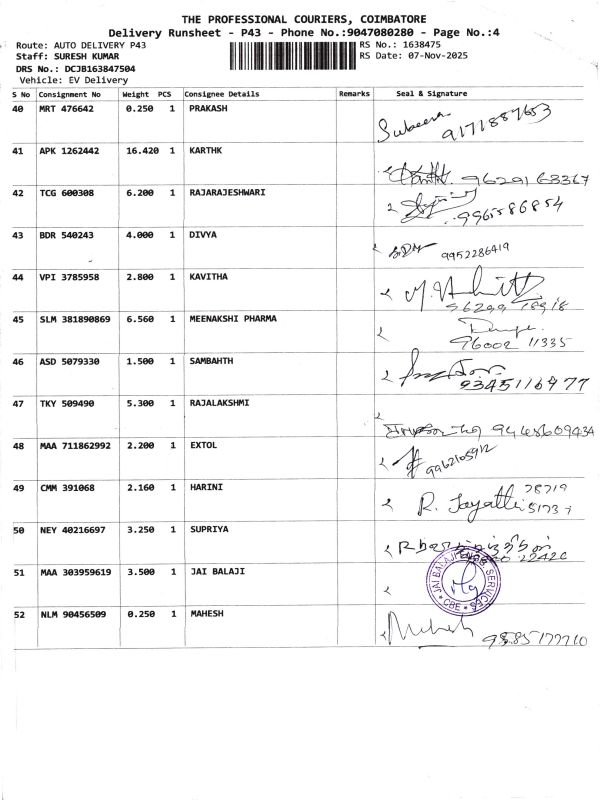 THE PROFESSIONAL COURIERS, COIMBATORE
Delivery Runsheet - P43 - Phone No.:9047080280 - Page No.:4
Route: AUTO DELIVERY P43
RS No.: 1638475
Staff: SURESH KUMAR
RS Date: 07-Nov-2025
DRS No.: DCJB163847504
Vehicle: EV Delivery
S No Consignment No Weight PCS Consignee Details Remarks Seal & Signature
40 MRT 476642 0.250 1 PRAKASH
9171887653
41 APK 1262442 16.420 1 KARTHK
9629163367
42 TCG 600308 6.200 1 RAJARAJESHWARI
9965586854
43 BDR 540243 4.000 1 DIVYA
9952286419
44 VPI 3785958 2.800 1 KAVITHA
96299 18918
45 SLM 381890869 6.560 1 MEENAKSHI PHARMA
96002 11335
46 ASD 5079330 1.500 1 SAMBAHTH
9345116977
47 TKY 509490 5.300 1 RAJALAKSHMI
48 MAA 711862992 2.200 1 EXTOL
9962105912
49 CMM 391068 2.160 1 HARINI
R. Jayathi
50 NEY 40216697 3.250 1 SUPRIYA
51 MAA 303959619 3.500 1 JAI BALAJI
JAI BALAJI SERVICES
CBE
52 NLM 90456509 0.250 1 MAHESH
Mahesh